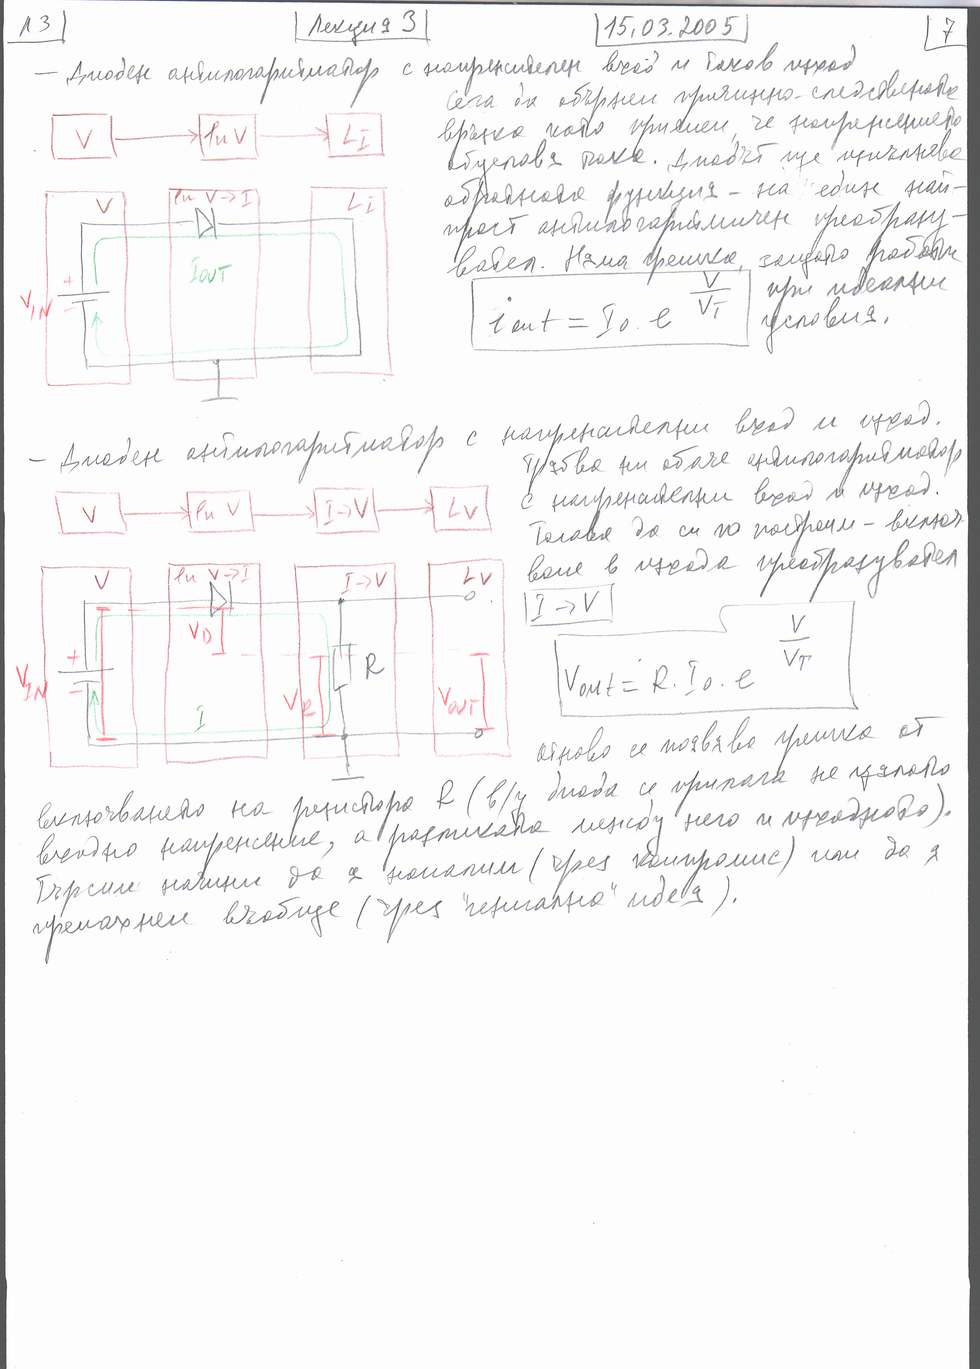 Л3
Лекция 3
15.03.2005
7
– Диоден антилогаритматор с напрежителен вход и токов изход
Сега да обърнем причинно-следствената
връзка като приемем, че напрежението
обуславя тока. Диодът ще изпълнява
обратната функция – на един най-
прост антилогаритмичен преобразу-
вател. Няма грешка, защото работи
при идеални
условия.
V
ln V
LI
V
ln V→I
LI
+
VIN
–
IOUT
iout = I0 . e^(V/VT)
– Диоден антилогаритматор с напрежителни вход и изход.
Трябва ни обаче антилогаритматор
с напрежителни вход и изход.
Тогава да си го построим – включ-
ваме в изхода преобразувател
I→V
V
ln V
I→V
LV
V
ln V→I
I→V
LV
+
VIN
–
VD
I
VR
R
VOUT
Vout = R . I0 . e^(V/VT)
отново се появява грешка от
включването на резистора R (в/у диода се прилага не цялото
входно напрежение, а разликата между него и изходното).
Търсим начини да я намалим (чрез компромис) или да я
премахнем въобще (чрез "гениална" идея).